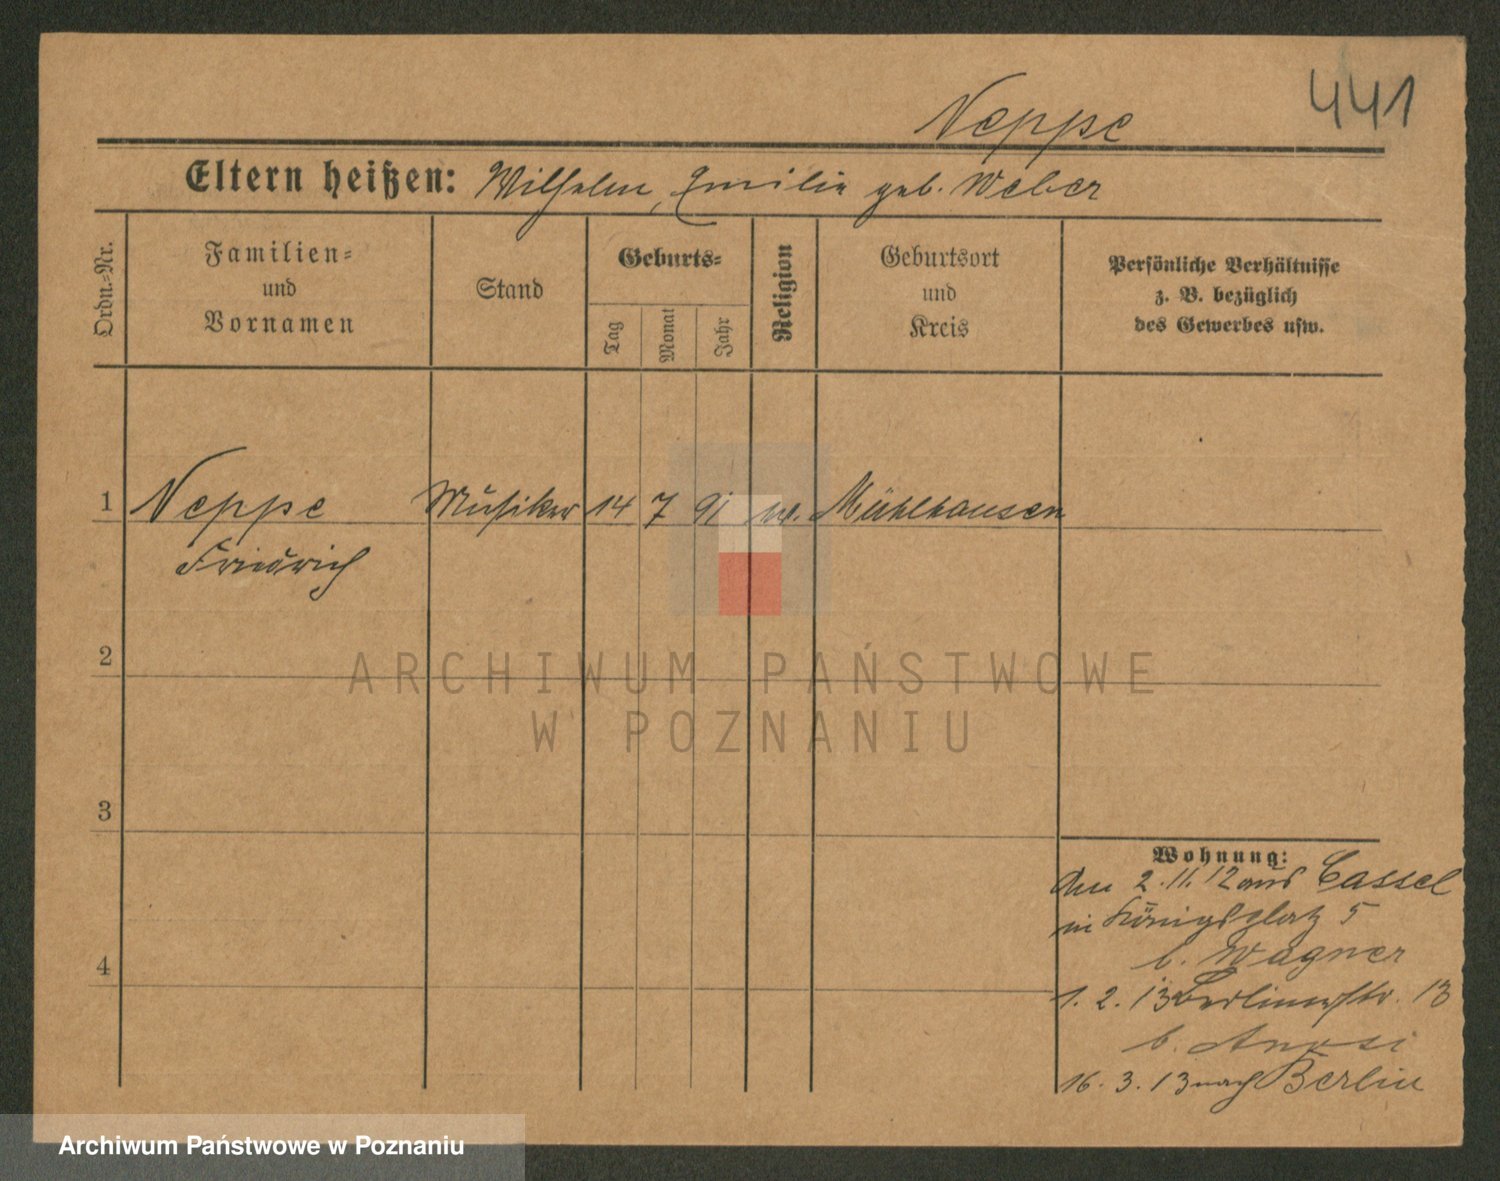 441
Neppe
Eltern heißen: Wilhelm, Emilie geb. Weber
Ordn.-Nr.
Familien-
und
Vornamen
Stand
Geburts-
Tag
Monat
Jahr
Religion
Geburtsort
und
Kreis
Persönliche Verhältnisse
z. B. bezüglich
des Gewerbes usw.
1 Neppe Musiker 14 7 91 Mühlhausen
Friedrich
2
3
4
Wohnung:
Am 2.11.12 aus Cassel
in Königsplatz 5
b. Wagner
1. 2. 13 Berlinerstr. 13
b.
16. 3. 13 nach Berlin
ARCHIWUM PAŃSTWOWE
W POZNANIU
Archiwum Państwowe w Poznaniu